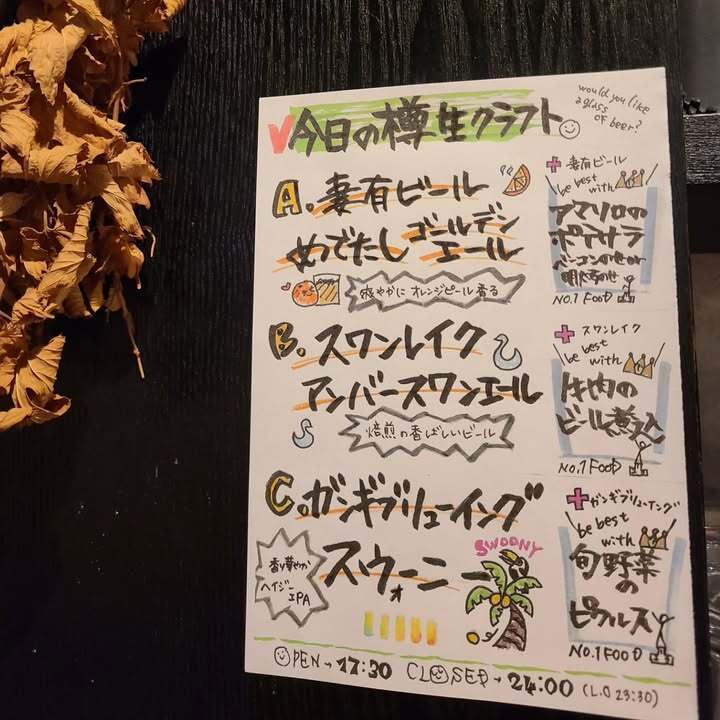 今日の樽生クラフト
would you like
a glass
of beer?
A. 妻有ビール
めでたし ゴールデン
エール
爽やかに オレンジピール香る
+ 妻有ビール
be best
with
ポテサラ
明太子のせ
NO.1 FOOD
B. スワンレイク
アンバースワンエール
焙煎の香ばしいビール
+ スワンレイク
be best
with
牛肉の
ビール煮込
NO.1 FOOD
C. ガンギブリューイング
スウォーニー
SWOONY
香り華やか
ヘイジー
IPA
+ ガンギブリューイング
be best
with
旬野菜
の
ピクルス
NO.1 FOOD
OPEN → 17:30 CLOSED → 24:00 (L.O 23:30)